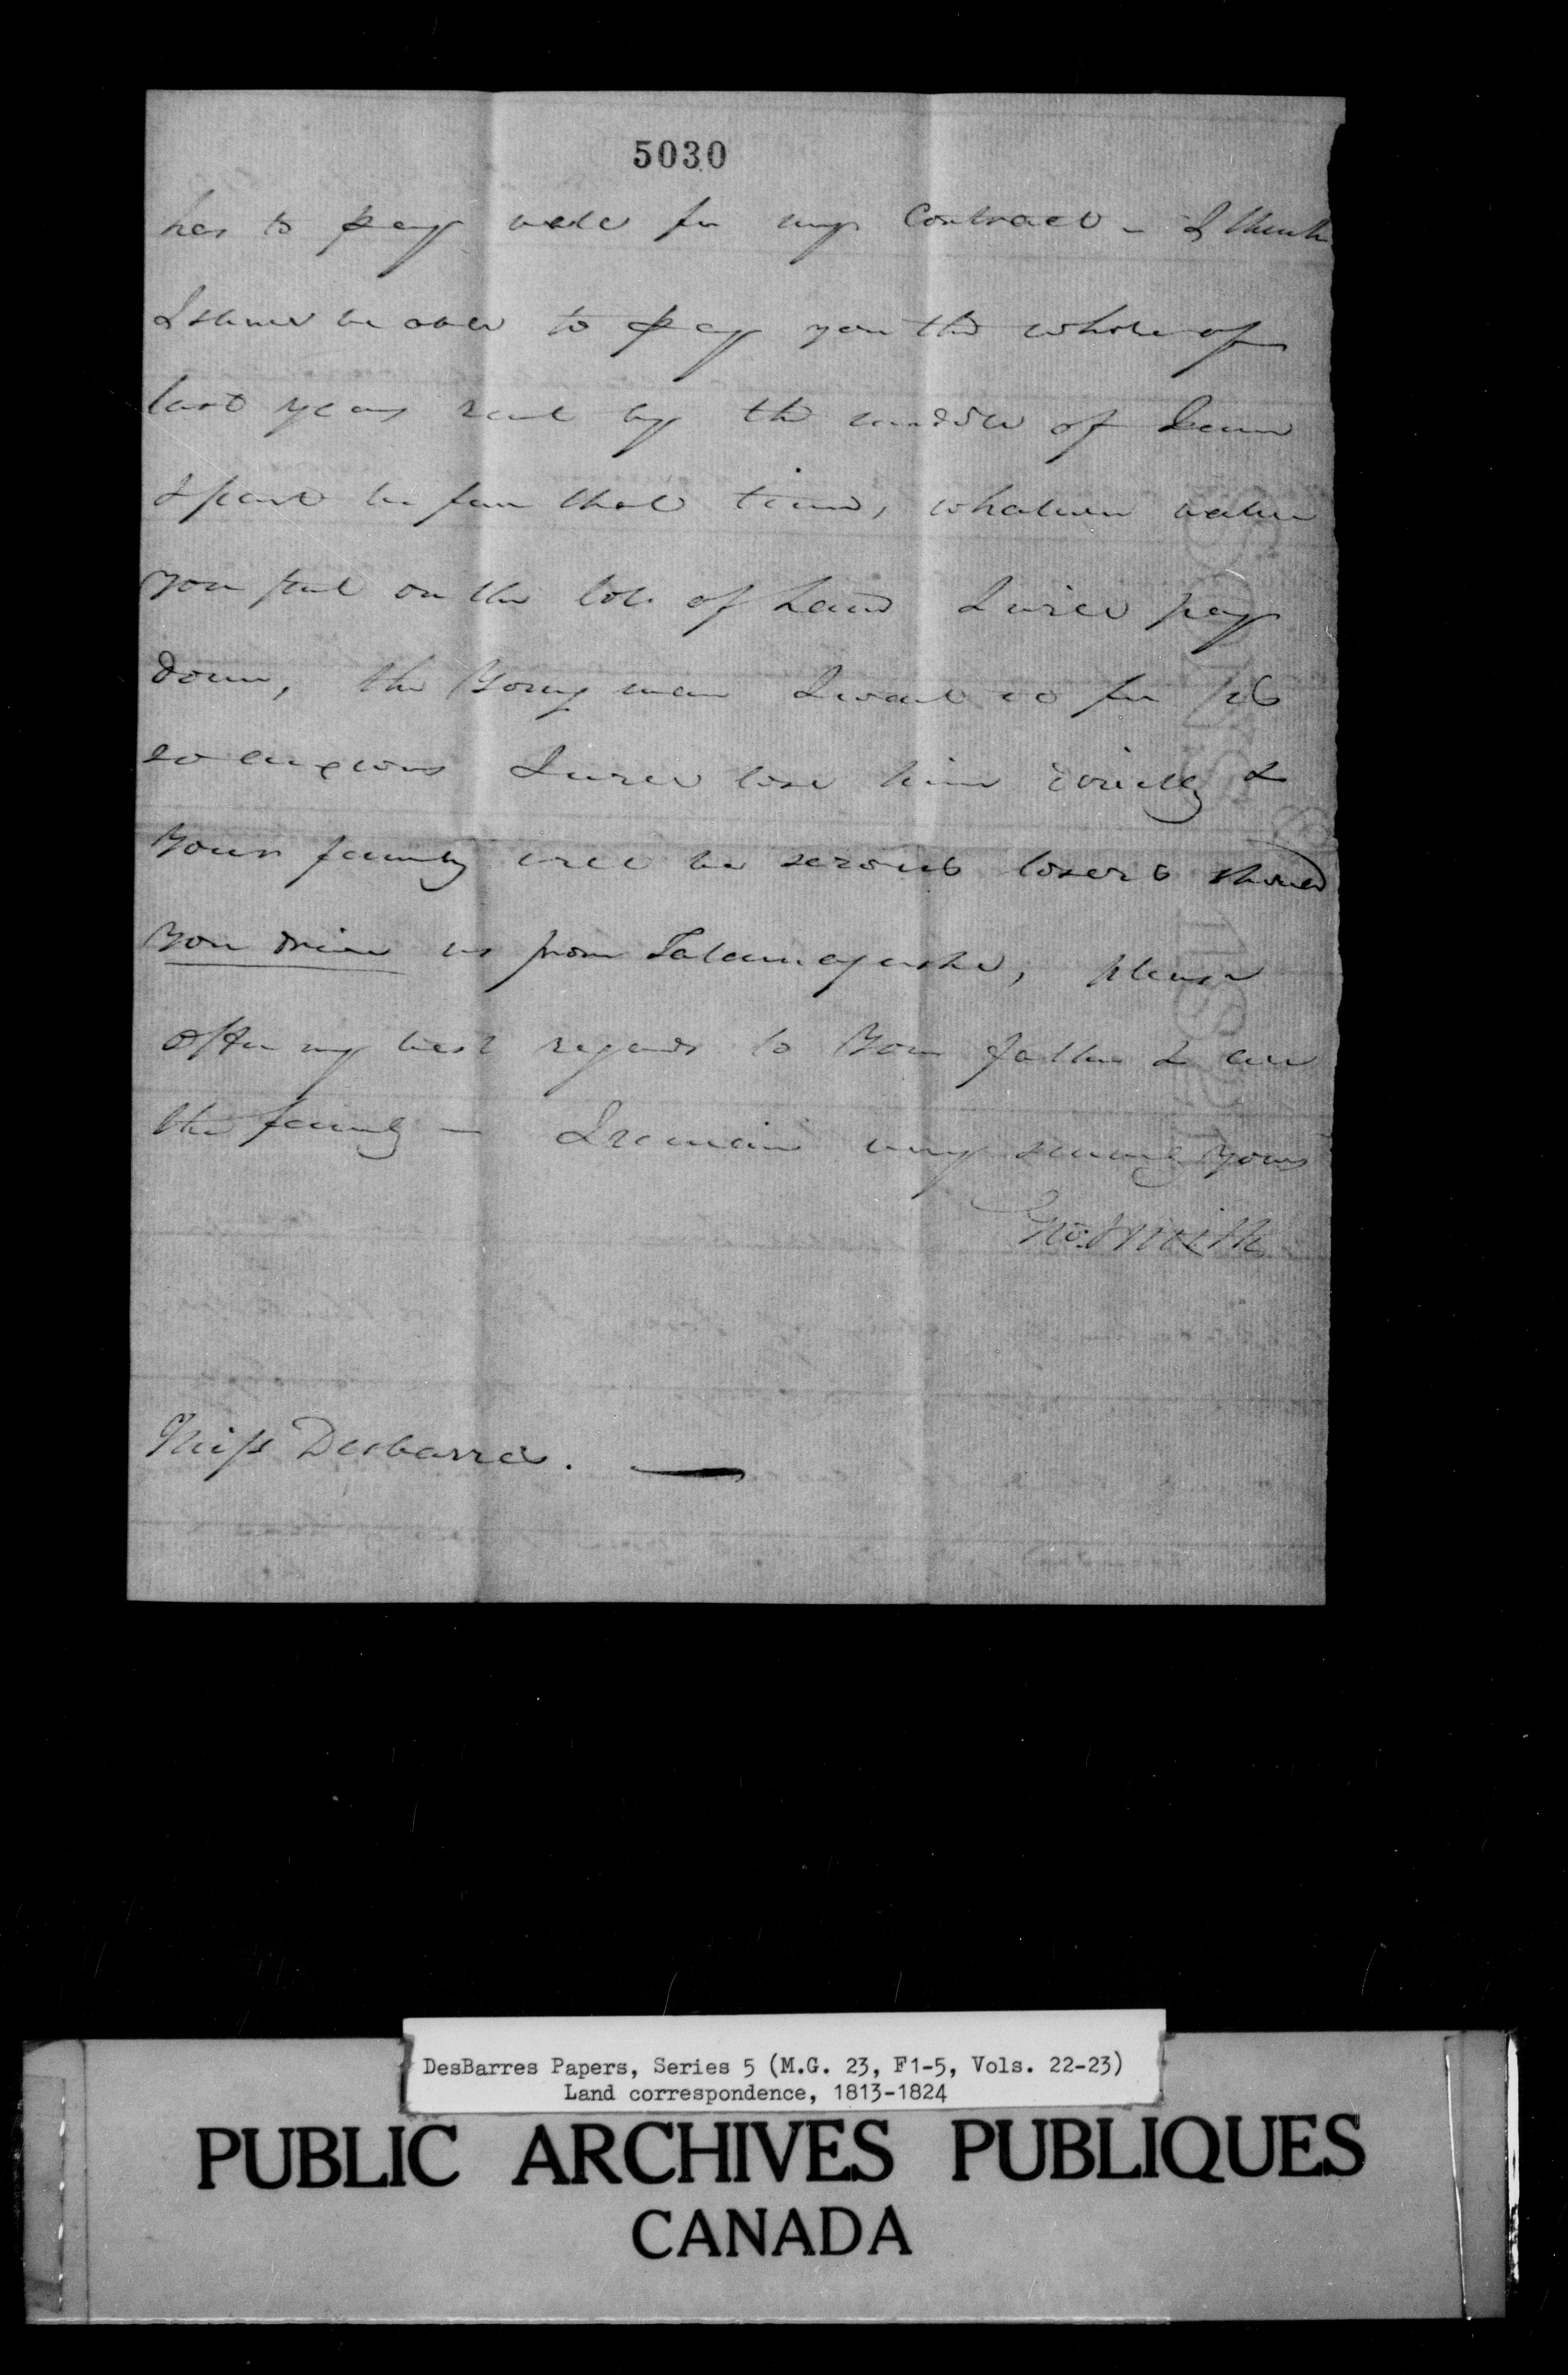 5030
has to pay well for my Contract - I think
I shall be able to pay you the whole of
last years rent by the middle of June
& part before that time, whatever value
you put on the lote of Land I will pay
down, the Young man I want it for is
so anxious I will lose him &
Your family will be serious losers should
You drive us from Tatamagushe, please
Offer my best regards to Your father & all
the family - I remain very sincerely Yours
Smith
Miss Desbarres.
DesBarres Papers, Series 5 (M.G. 23, F1-5, Vols. 22-23)
Land correspondence, 1813-1824
PUBLIC ARCHIVES PUBLIQUES
CANADA